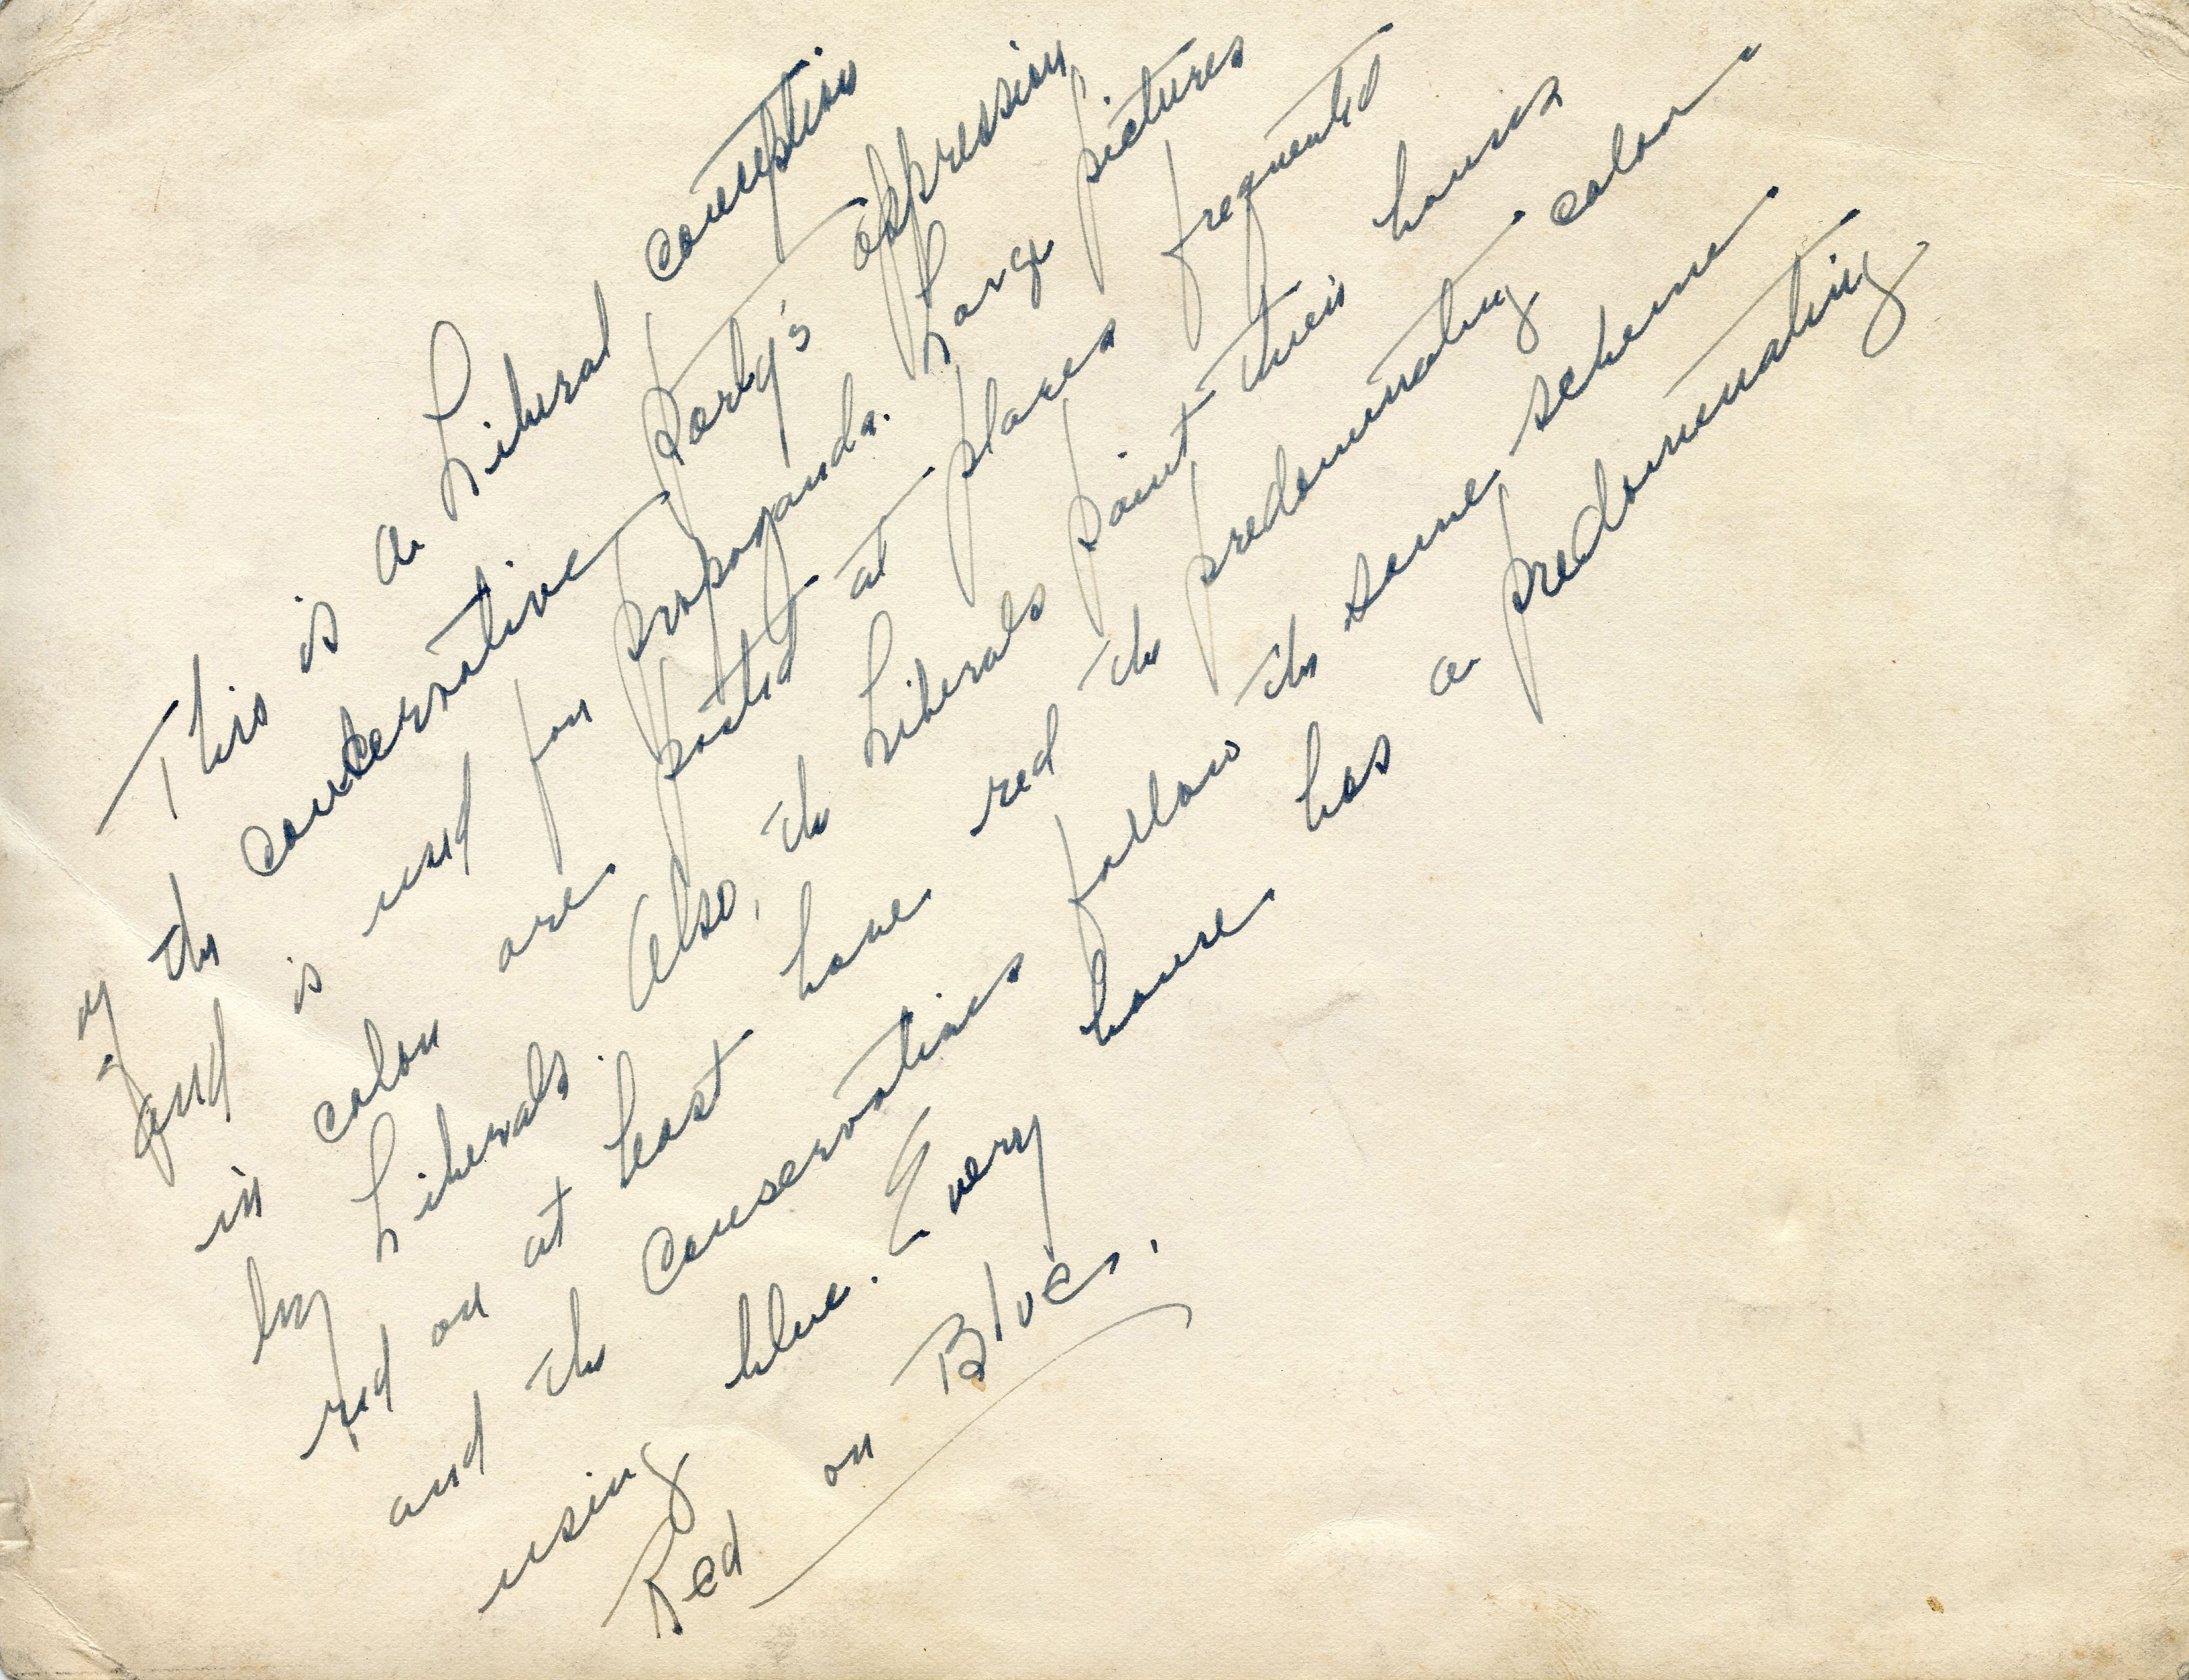 This is a Liberal conception
of the conservative Party's oppression,
and is used for propaganda. Large pictures
in color are posted at places frequented
by Liberals. Also, the Liberals paint their houses
red or at least have red the predominating color
and the Conservatives follow the same scheme
using blue. Every house has a predominating
Red or Blue.